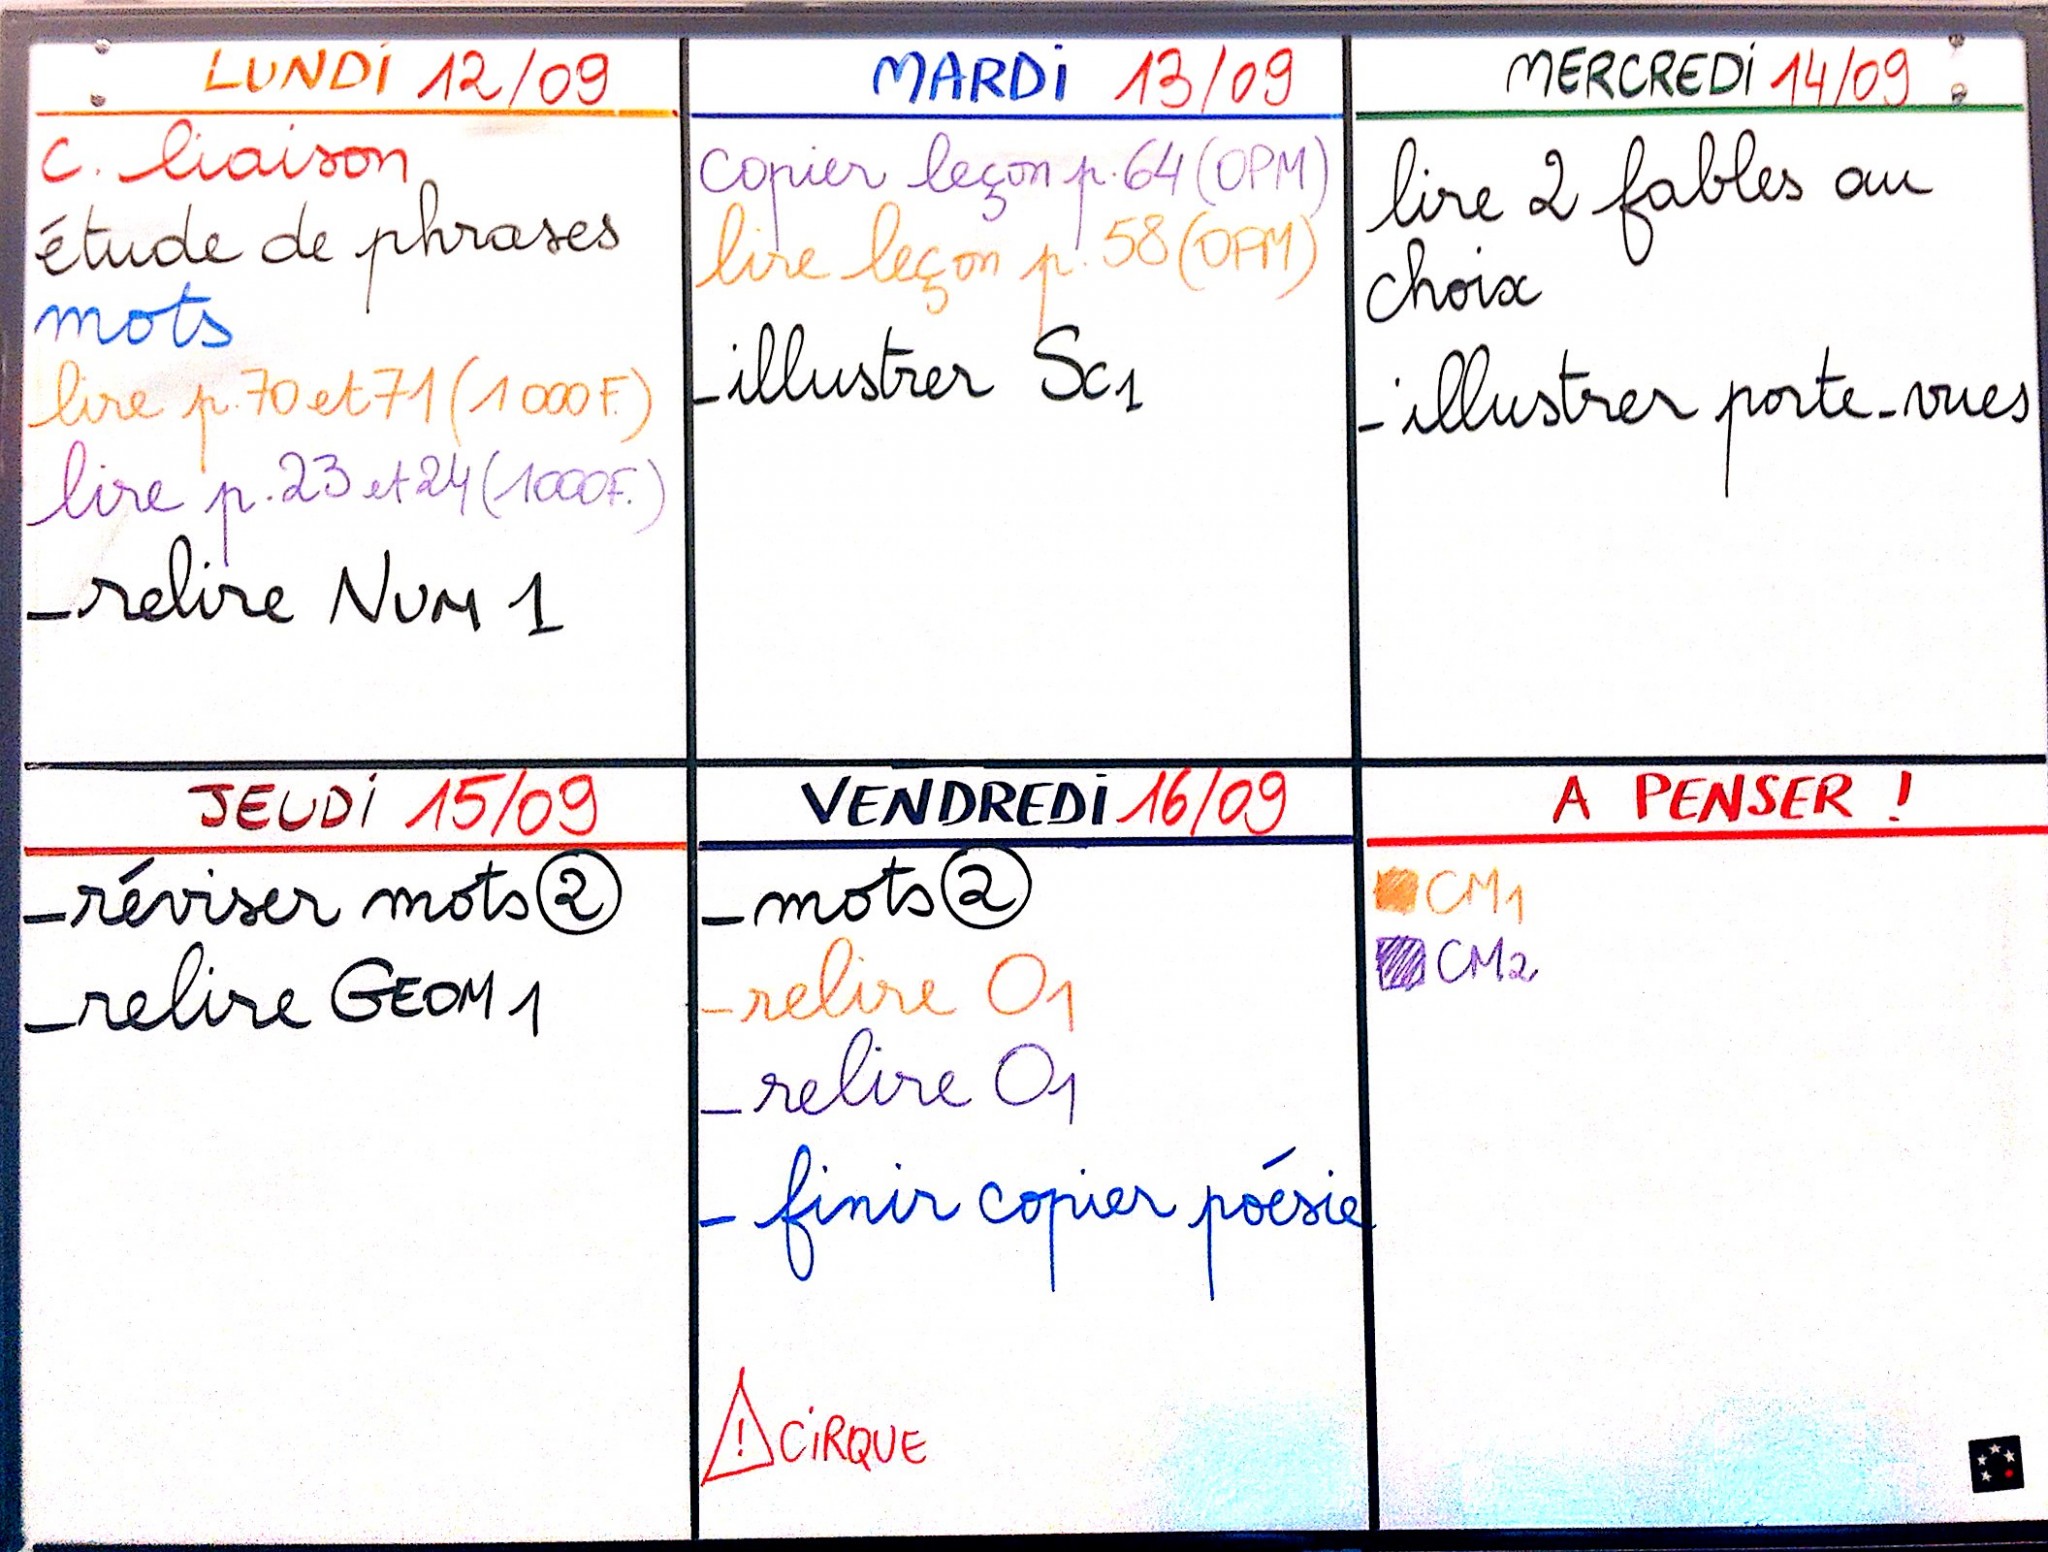 LUNDI 12/09
c. liaison
étude de phrases
mots
lire p.70 et 71 (1000F.)
lire p.23 et 24 (1000F.)
- relire NUM 1
MARDI 13/09
copier leçon p.64 (OPM)
lire leçon p.58 (OPM)
- illustrer Sc1
MERCREDI 14/09
lire 2 fables au
choix
- illustrer porte-vues
JEUDI 15/09
- réviser mots ②
- relire GEOM 1
VENDREDI 16/09
- mots ②
- relire O1
- relire O1
- finir copier poésie
! CIRQUE
A PENSER !
CM1
CM2